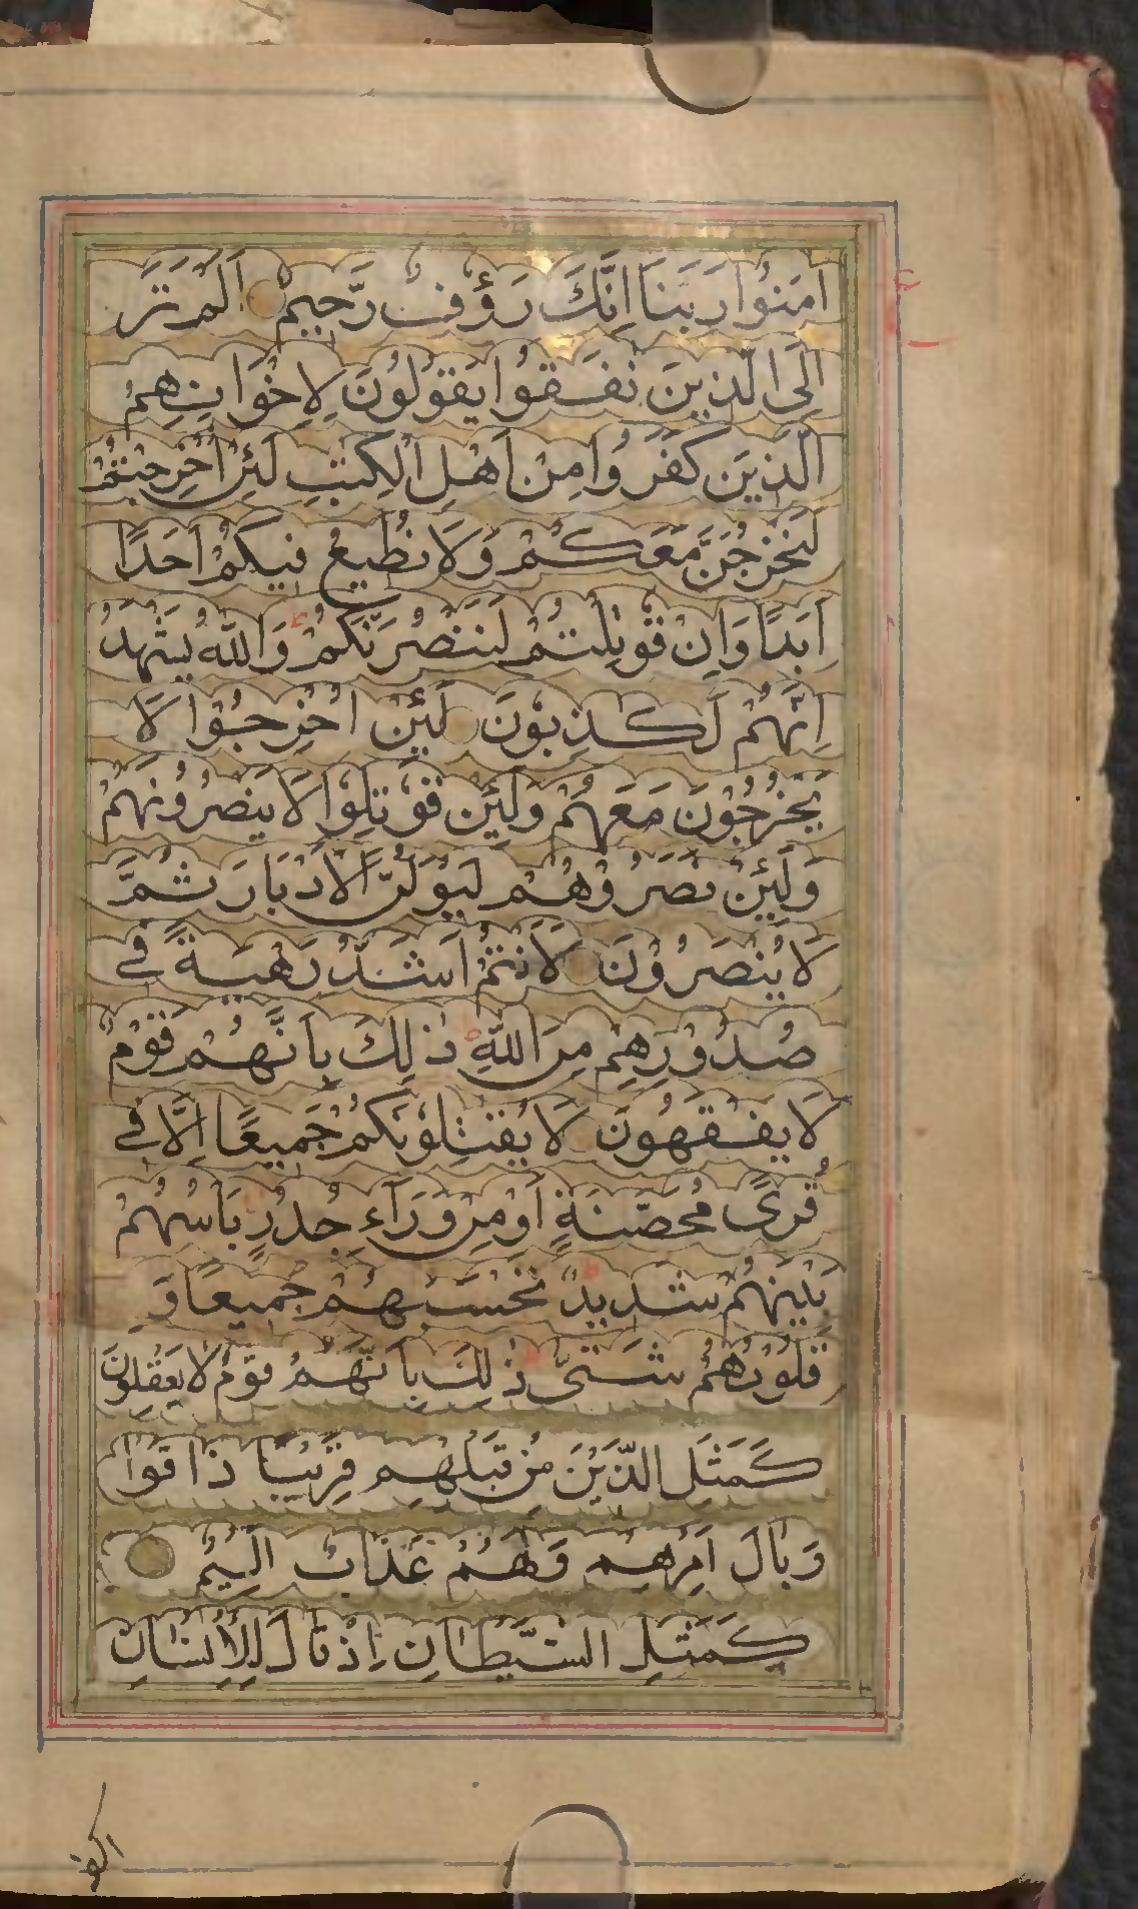 اٰمَنُوا رَبَّنَا اِنَّكَ رَؤُفٌ رَّحِيمٌ اَلَمْ تَرَ
اِلَى الَّذِينَ نَفَقُوا يَقُوْلُوْنَ لِاِخْوَانِهِمُ
الَّذِينَ كَفَرُوا مِنْ اَهْلِ الْكِتٰبِ لَئِنْ اُخْرِجْتُمْ
لَنَخْرُجَنَّ مَعَكُمْ وَلَا نُطِيعُ فِيكُمْ اَحَدًا
اَبَدًا وَاِنْ قُوْتِلْتُمْ لَنَنْصُرَنَّكُمْ وَاللّٰهُ يَشْهَدُ
اِنَّهُمْ لَكٰذِبُوْنَ لَئِنْ اُخْرِجُوْا لَا
يَخْرُجُوْنَ مَعَهُمْ وَلَئِنْ قُوْتِلُوْا لَا يَنْصُرُوْنَهُمْ
وَلَئِنْ نَصَرُوْهُمْ لَيُوَلُّنَّ الْاَدْبَارَ ثُمَّ
لَا يُنْصَرُوْنَ لَاَنْتُمْ اَشَدُّ رَهْبَةً فِي
صُدُوْرِهِمْ مِنَ اللّٰهِ ذٰلِكَ بِاَنَّهُمْ قَوْمٌ
لَا يَفْقَهُوْنَ لَا يُقٰتِلُوْنَكُمْ جَمِيعًا اِلَّا فِي
قُرًى مُحَصَّنَةٍ اَوْ مِنْ وَرَآءِ جُدُرٍ بَاْسُهُمْ
بَيْنَهُمْ شَدِيدٌ تَحْسَبُهُمْ جَمِيعًا وَ
قُلُوْبُهُمْ شَتّٰى ذٰلِكَ بِاَنَّهُمْ قَوْمٌ لَا يَعْقِلُوْنَ
كَمَثَلِ الَّذِيْنَ مِنْ قَبْلِهِمْ قَرِيْبًا ذَاقُوْا
وَبَالَ اَمْرِهِمْ وَلَهُمْ عَذَابٌ اَلِيْمٌ
كَمَثَلِ الشَّيْطَانِ اِذْ قَالَ لِلْاِنْسَانِ
اكفر